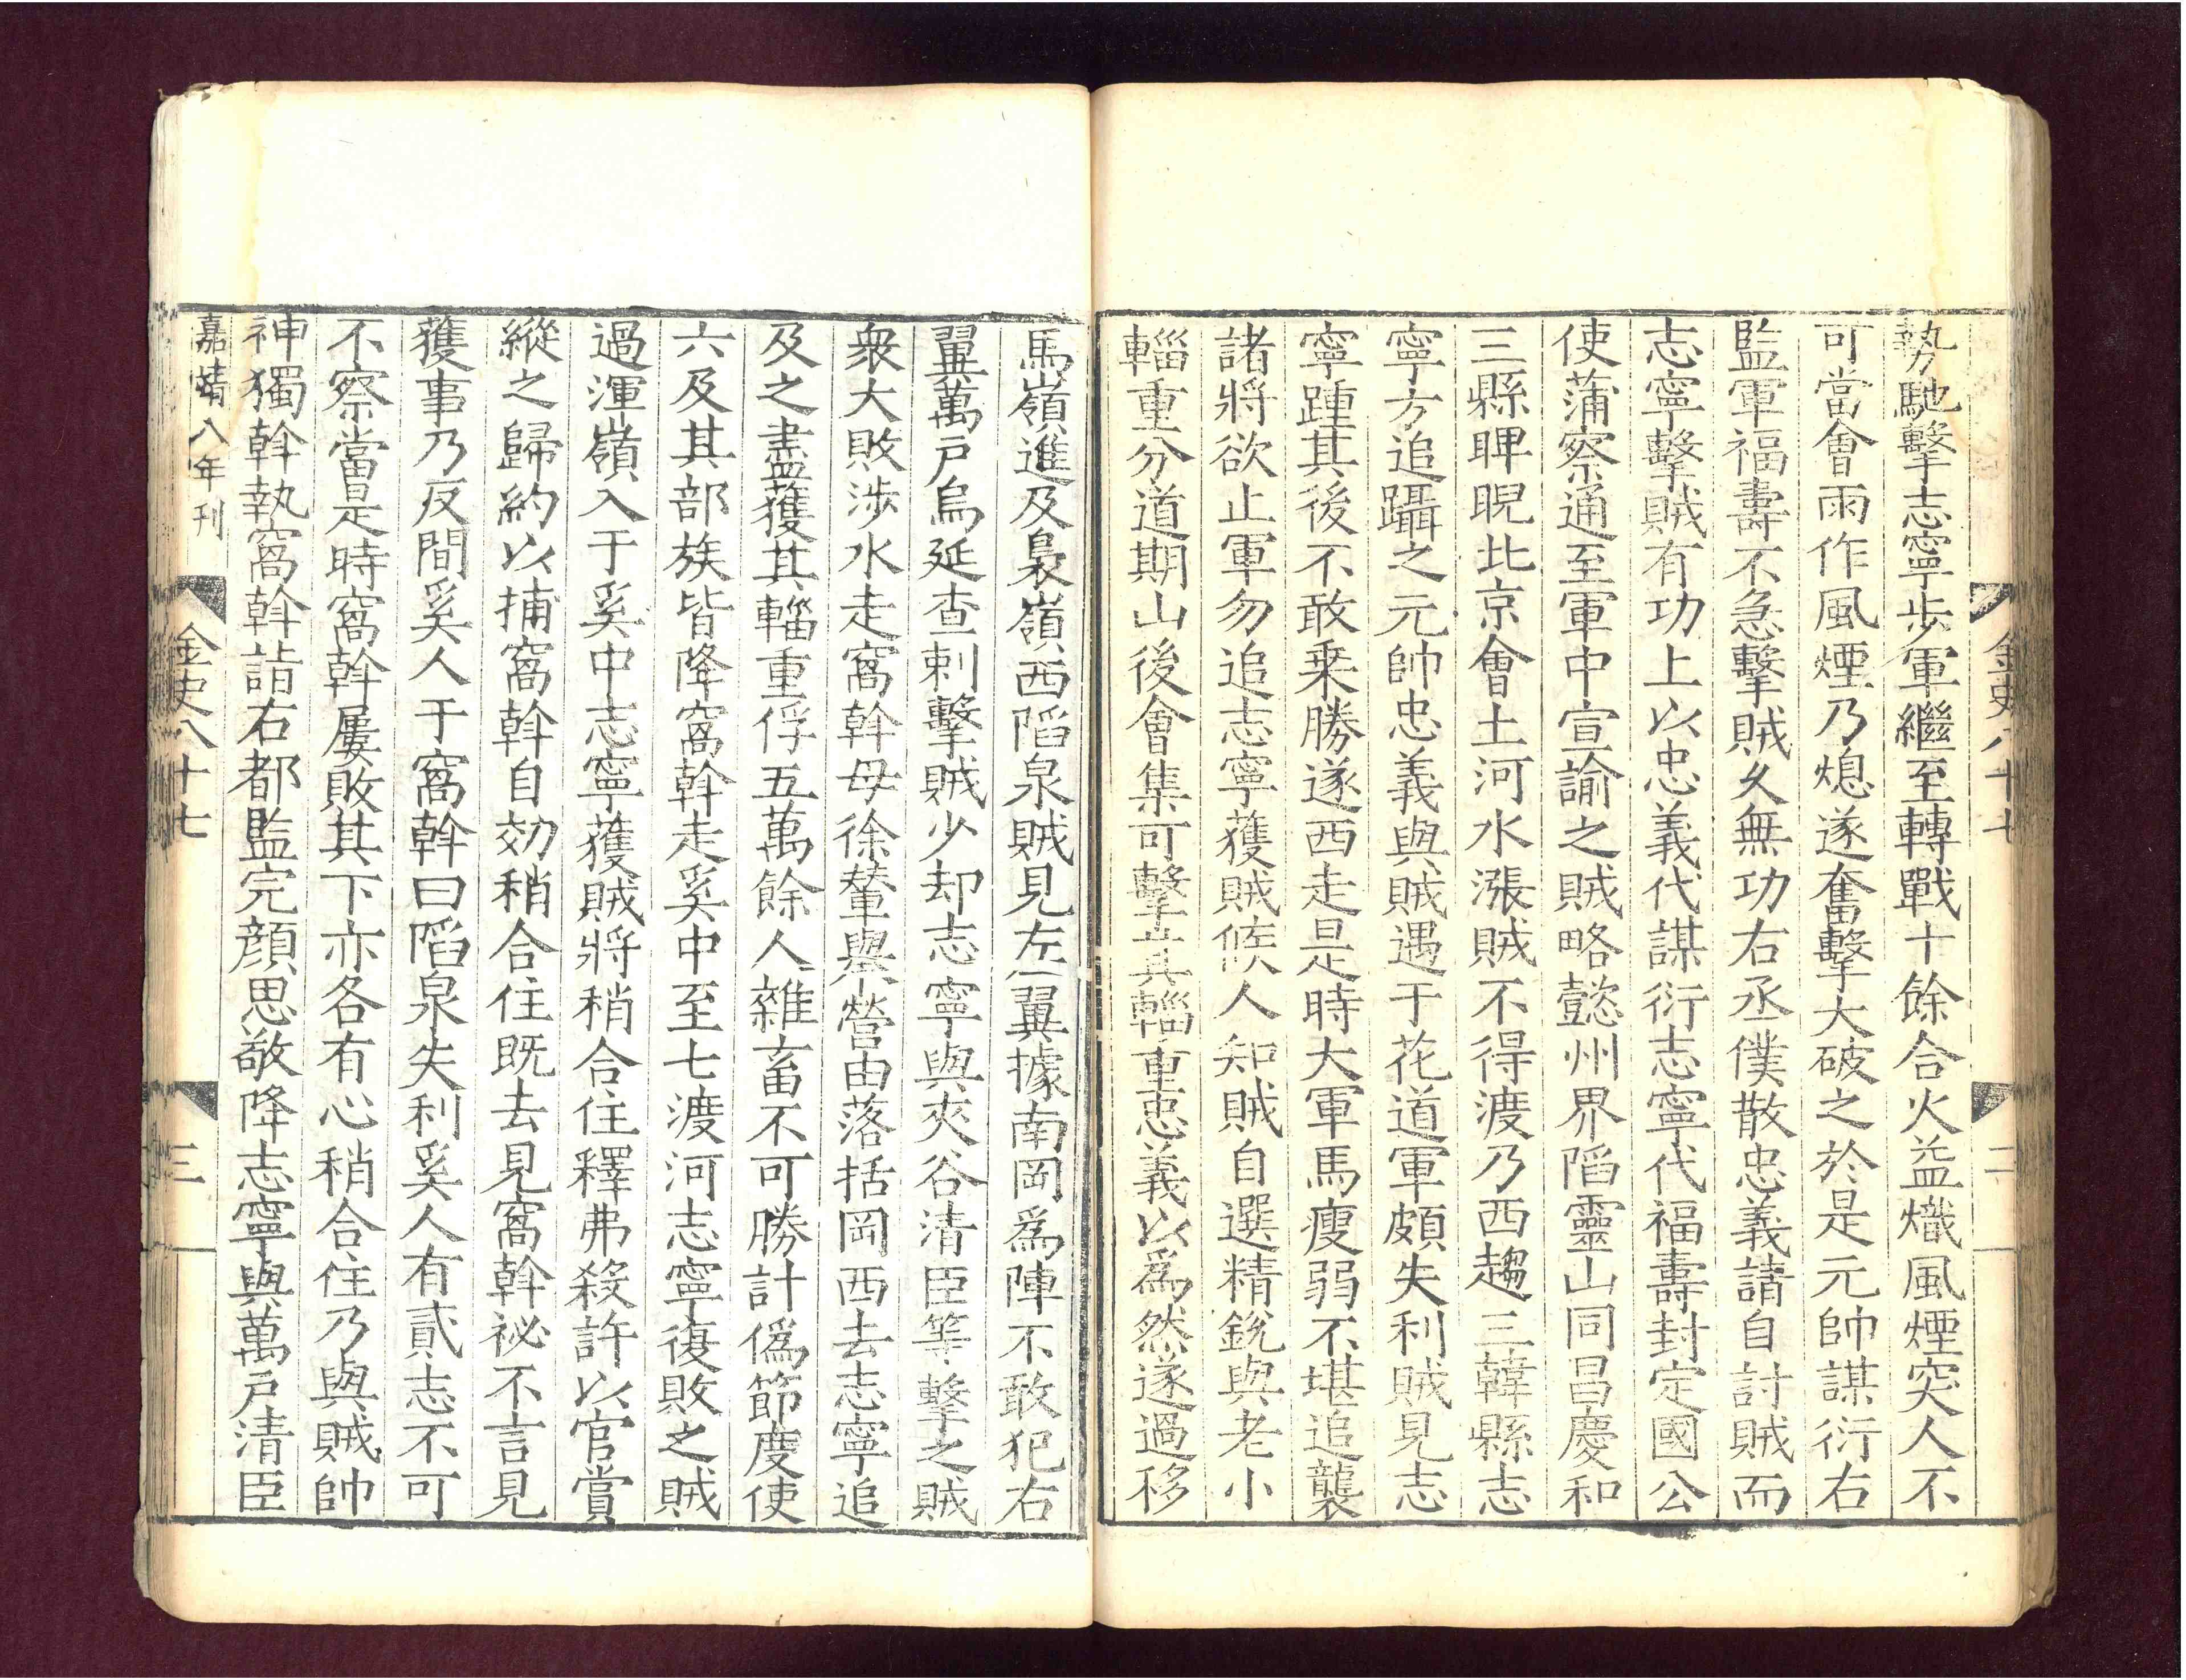 金史八十七
二
勢馳擊志寧步軍繼至轉戰十餘合火益熾風煙突人不
可當會雨作風煙乃熄遂奮擊大破之於是元帥謀衍右
監軍福壽不急擊賊久無功右丞僕散忠義請自討賊而
志寧擊賊有功上以忠義代謀衍志寧代福壽封定國公
使蒲察通至軍中宣諭之賊略懿州界陷靈山同昌慶和
三縣睥睨北京會土河水漲賊不得渡乃西趨三韓縣志
寧方追躡之元帥忠義與賊遇于花道軍頗失利賊見志
寧踵其後不敢乗勝遂西走是時大軍馬瘦弱不堪追襲
諸將欲止軍勿追志寧獲賊候人知賊自選精銳與老小
輜重分道期山後會集可擊其輜重忠義以爲然遂過移
馬嶺進及裊嶺西陷泉賊見左翼據南岡爲陣不敢犯右
翼萬戶烏延查剌擊賊少却志寧與夾谷清臣等擊之賊
衆大敗涉水走窩斡母徐輦舉營由落括岡西去志寧追
及之盡獲其輜重俘五萬餘人雜畜不可勝計僞節度使
六及其部族皆降窩斡走奚中至七渡河志寧復敗之賊
過渾嶺入于奚中志寧獲賊將稍合住釋弗殺許以官賞
縱之歸約以捕窩斡自効稍合住既去見窩斡祕不言見
獲事乃反間奚人于窩斡曰陷泉失利奚人有貳志不可
不察當是時窩斡屢敗其下亦各有心稍合住乃與賊帥
神獨斡執窩斡詣右都監完顔思敬降志寧與萬戶清臣
嘉靖八年刊
金史八十七
三